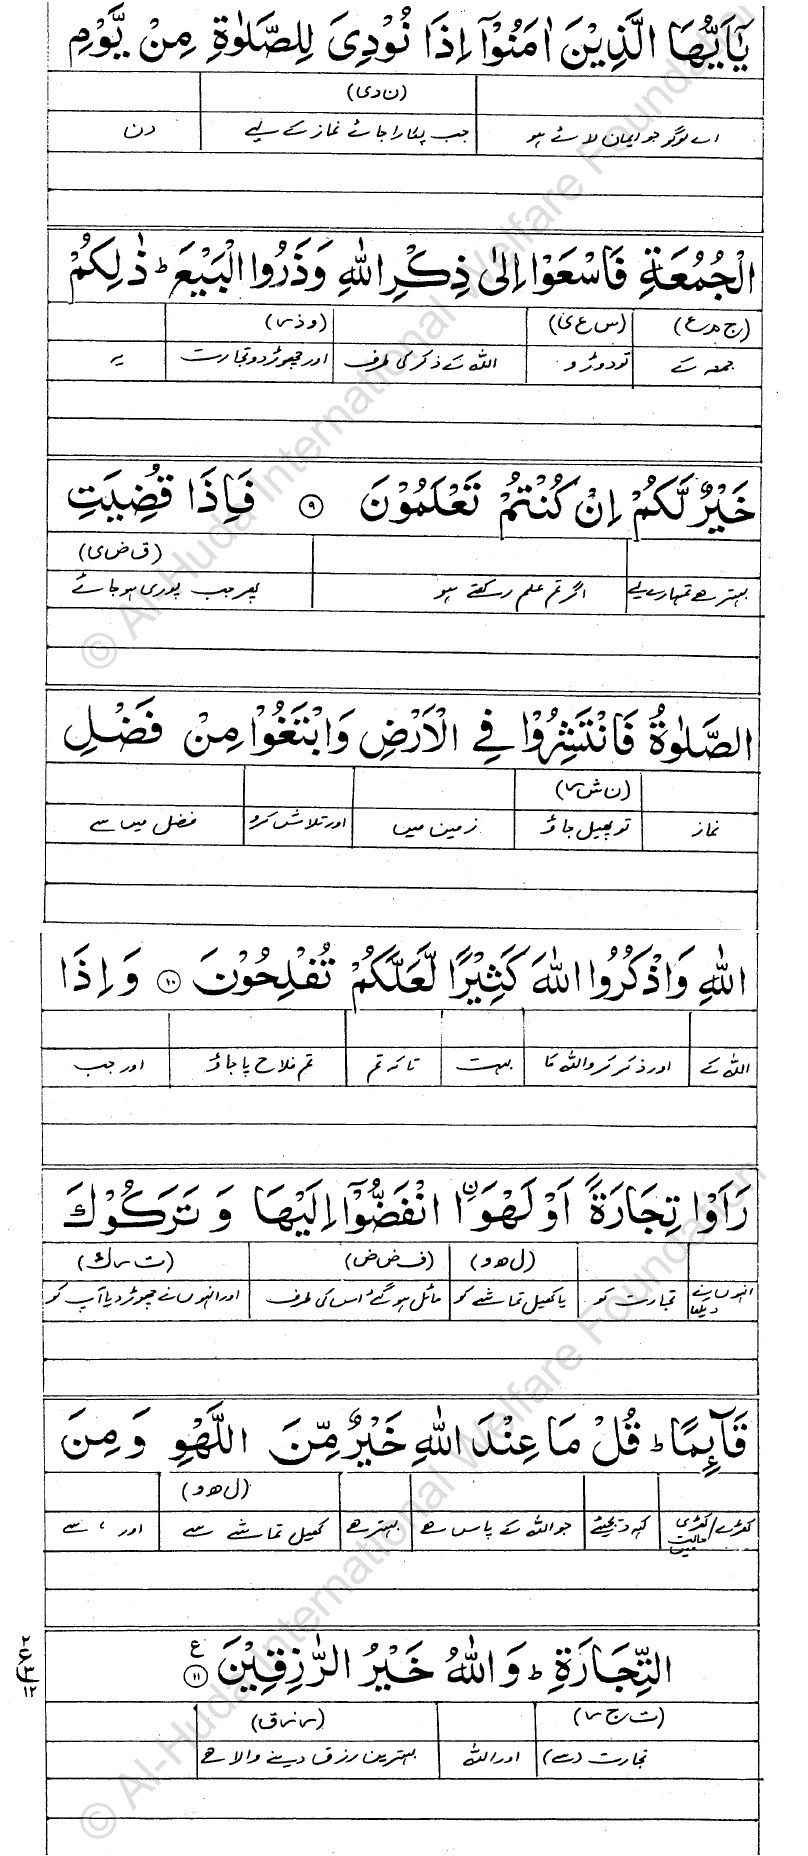 يٰٓاَيُّهَا الَّذِيْنَ اٰمَنُوْٓا اِذَا نُوْدِيَ لِلصَّلٰوةِ مِنْ يَّوْمِ
(ن د ی)
اے لوگو جو ایمان لائے ہو جب پکارا جائے نماز کے لیے دن
الْجُمُعَةِ فَاسْعَوْا اِلٰى ذِكْرِ اللّٰهِ وَذَرُوا الْبَيْعَ ؕ ذٰلِكُمْ
(ج م ع) (س ع ی) (و ذ ر)
جمعہ کے تو دوڑو اللہ کے ذکر کی طرف اور چھوڑ دو تجارت یہ
خَيْرٌ لَّكُمْ اِنْ كُنْتُمْ تَعْلَمُوْنَ ۹ فَاِذَا قُضِيَتِ
(ق ض ی)
بہتر ہے تمہارے لیے اگر تم علم رکھتے ہو پھر جب پوری ہو جائے
الصَّلٰوةُ فَانْتَشِرُوْا فِي الْاَرْضِ وَابْتَغُوْا مِنْ فَضْلِ
(ن ش ر)
نماز تو پھیل جاؤ زمین میں اور تلاش کرو فضل میں سے
اللّٰهِ وَاذْكُرُوا اللّٰهَ كَثِيْرًا لَّعَلَّكُمْ تُفْلِحُوْنَ ۱۰ وَاِذَا
اللہ کے اور ذکر کرو اللہ کا بہت تاکہ تم تم فلاح پا جاؤ اور جب
رَاَوْا تِجَارَةً اَوْ لَهْوَا ۨ انْفَضُّوْٓا اِلَيْهَا وَتَرَكُوْكَ
(ل ھ و) (ف ض ض) (ت ر ك)
انہوں نے دیکھا تجارت کو یا کھیل تماشے کو مائل ہو گئے اس کی طرف اور انہوں نے چھوڑ دیا آپ کو
قَآئِمًا ؕ قُلْ مَا عِنْدَ اللّٰهِ خَيْرٌ مِّنَ اللَّهْوِ وَمِنَ
(ل ھ و)
کھڑے/کھڑی حالت میں کہہ دیجیئے جو اللہ کے پاس ہے بہتر ہے کھیل تماشے سے اور، سے
التِّجَارَةِ ؕ وَاللّٰهُ خَيْرُ الرّٰزِقِيْنَ ۱۱ ع
۲ ع ۳ ۱۲
(ت ج ر) (ر ز ق)
تجارت (سے) اور اللہ بہترین رزق دینے والا ہے
© Al-Huda International Welfare Foundation
© Al-Huda International Welfare Foundation